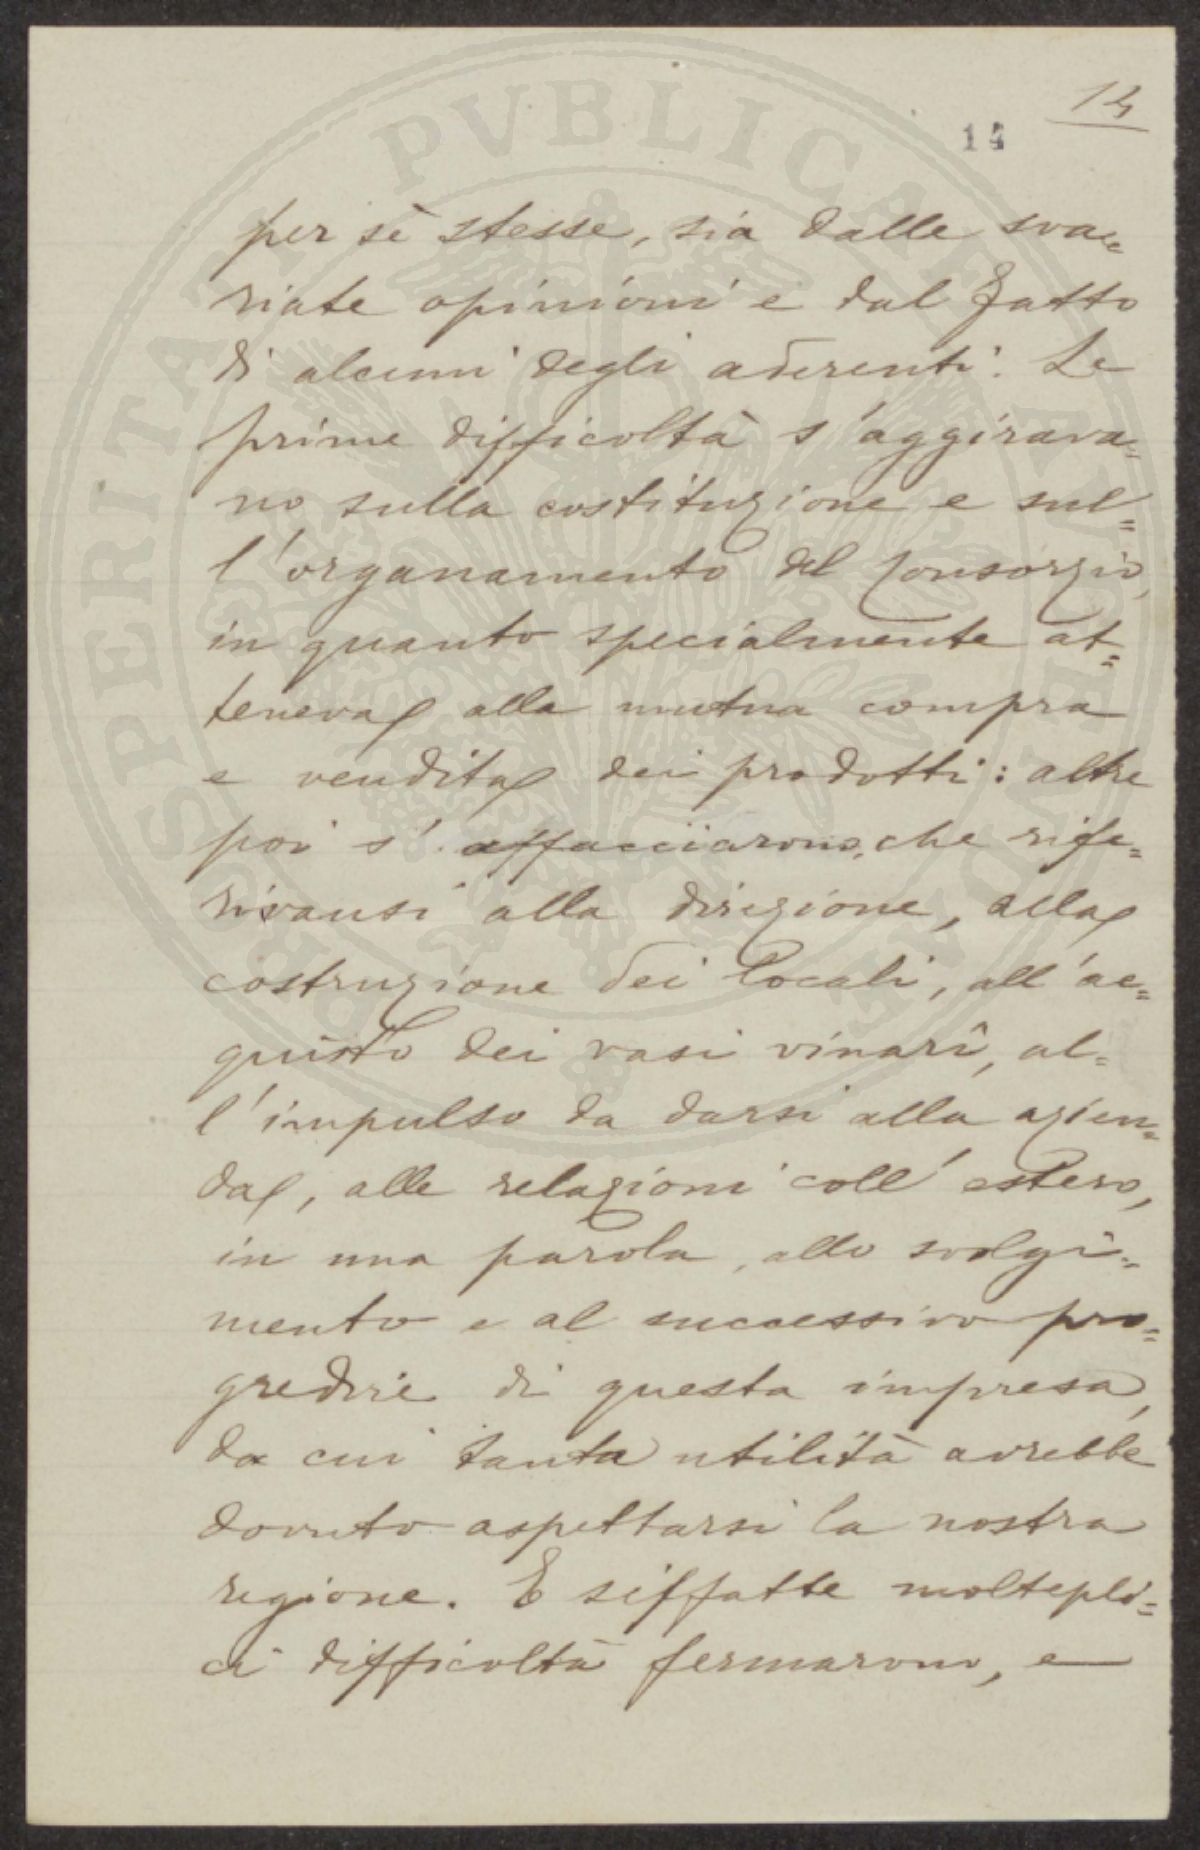 14
14
per sè stesse, sia dalle sva=
riate opinioni e dal fatto
di alcuni degli aderenti. Le
prime difficoltà s'aggirava=
no sulla costituzione e sul=
l'organamento del Consorzio,
in quanto specialmente at=
teneva alla mutua compra
e vendita dei prodotti: altre
poi s'affacciarono, che rife=
rivansi alla direzione, alla
costruzione dei locali, all'ac=
quisto dei vasi vinarî, al=
l'impulso da darsi alla azien=
da, alle relazioni coll'estero,
in una parola, allo svolgi=
mento e al successivo pro=
gredire di questa impresa,
da cui tanta utilità avrebbe
dovuto aspettarsi la nostra
regione. E siffatte moltepli=
ci difficoltà fermarono, e
PROSPERITATI PVBLICAE AVGENDAE